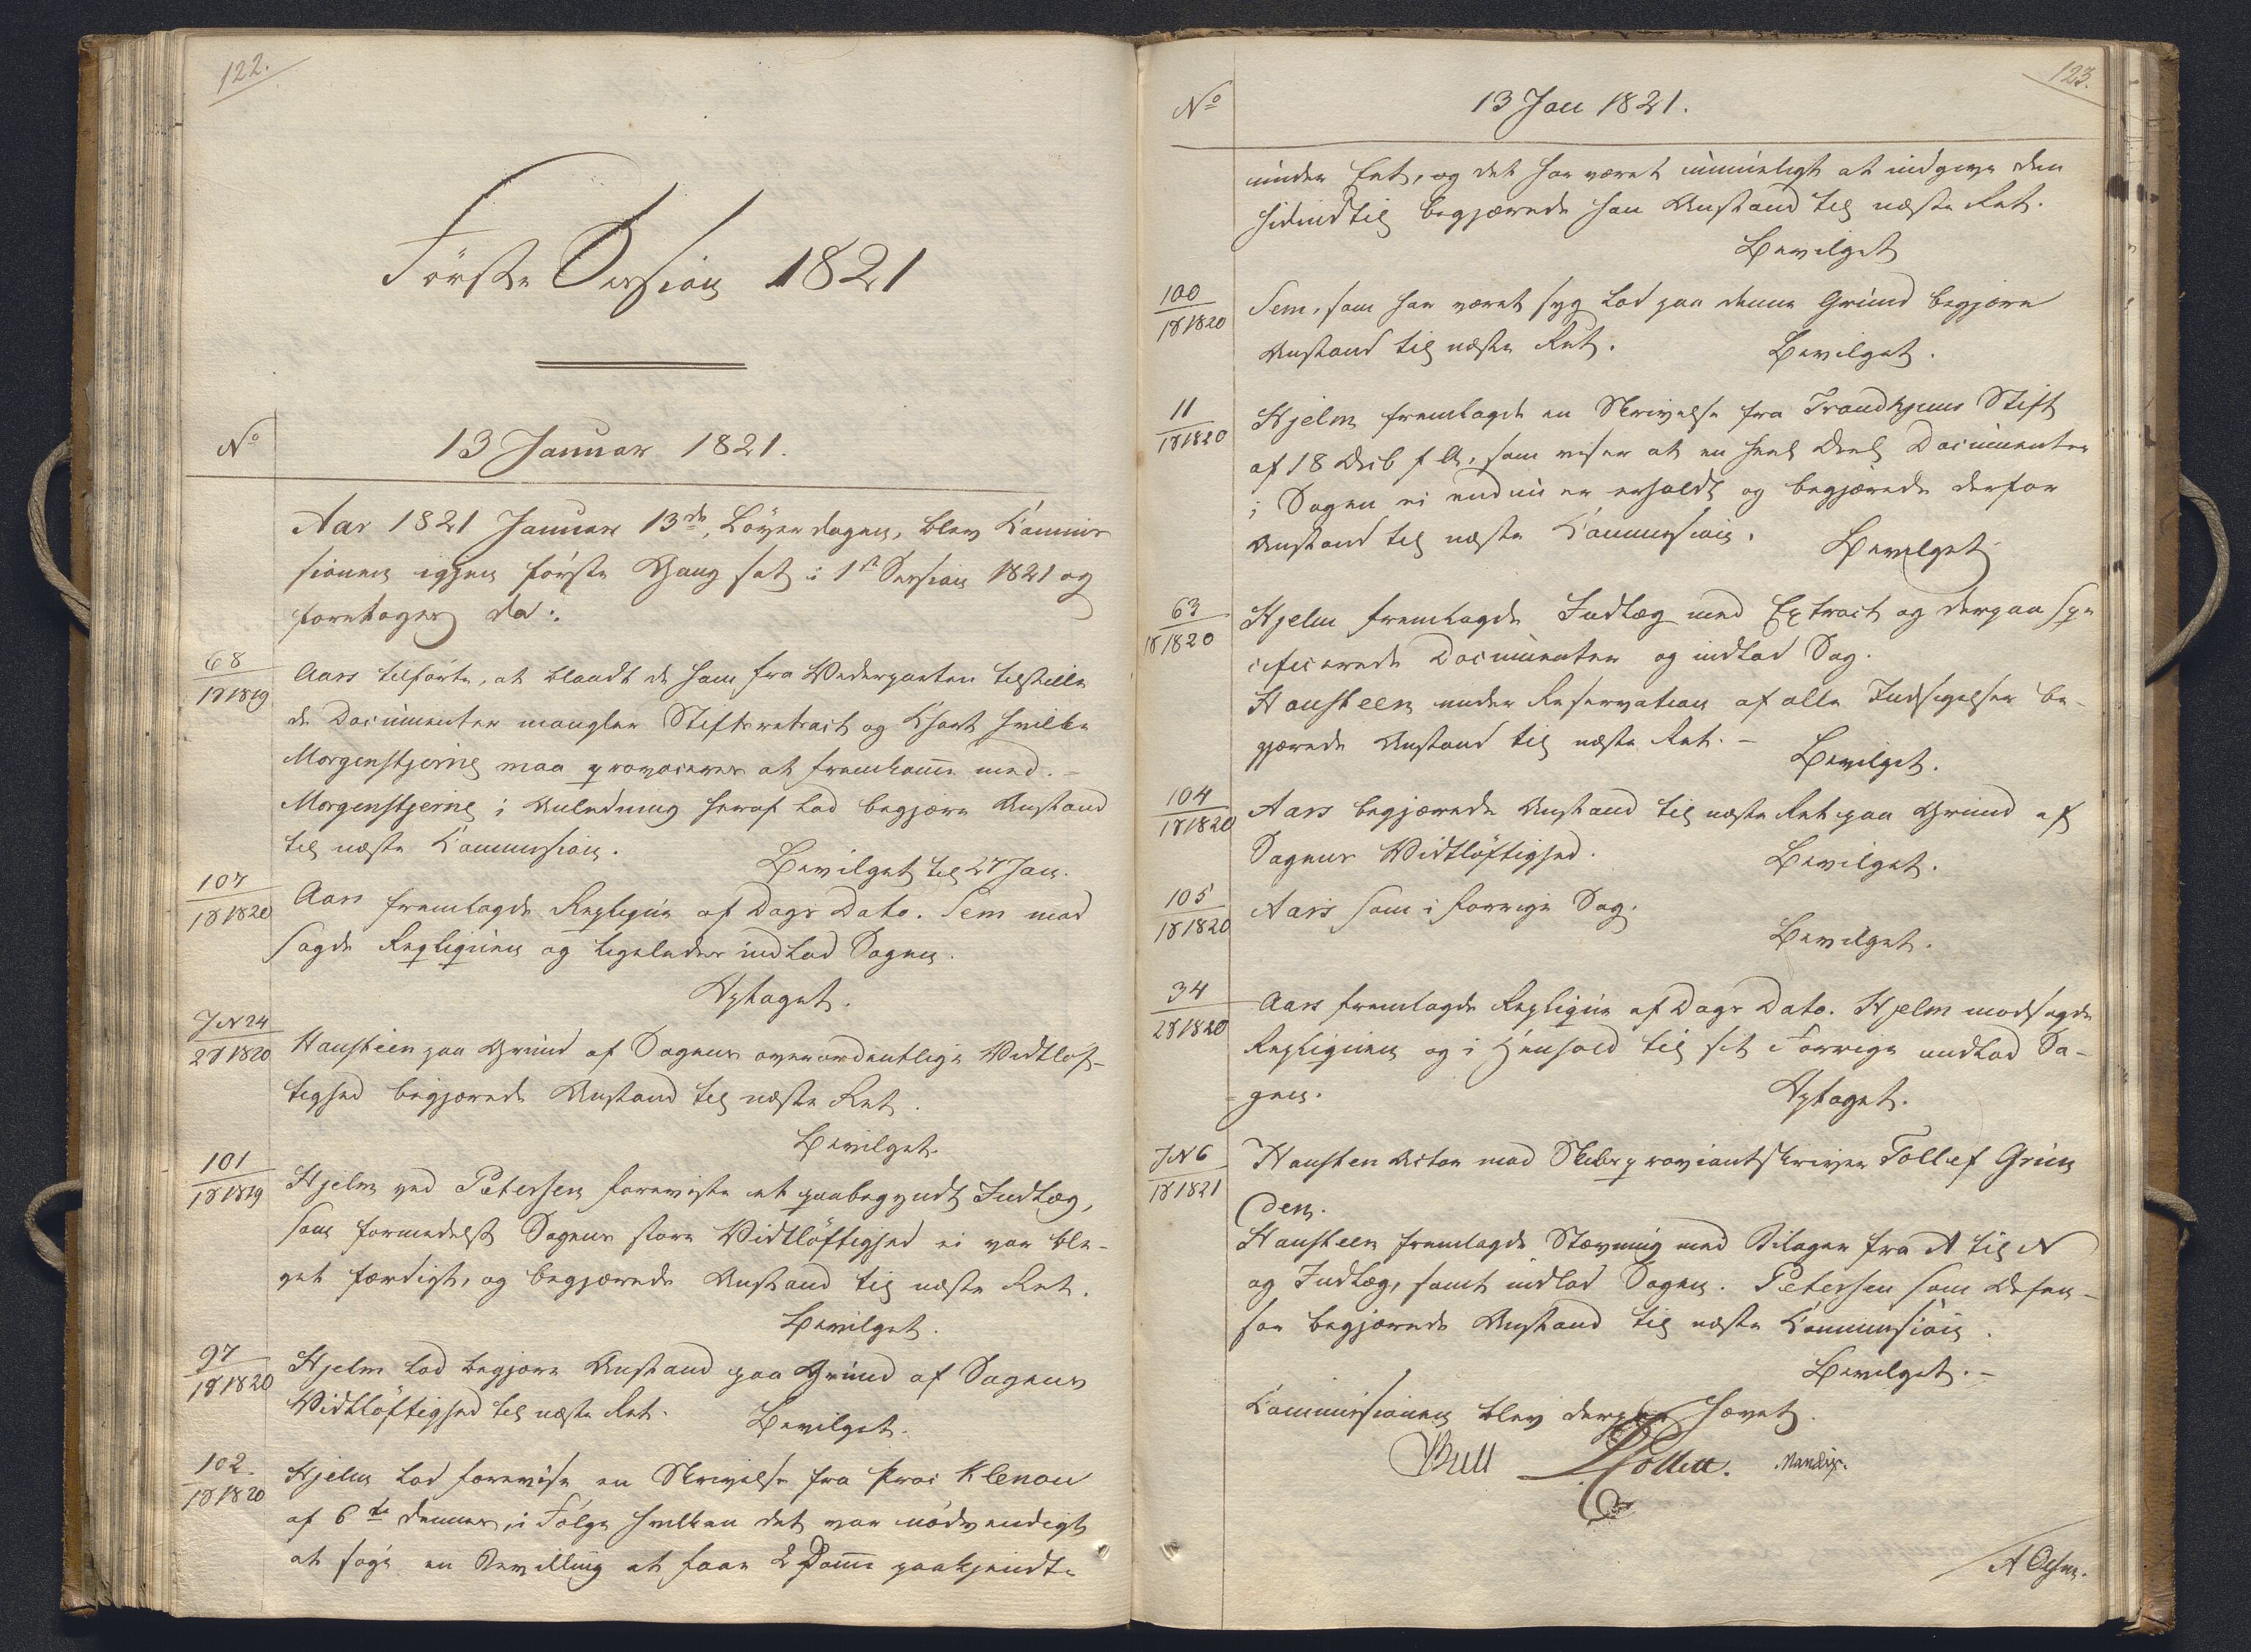 122.
Förste Session 1821
No
13 Januar 1821.
Aar 1821 Januar 13de, Löverdagen, blev Commis
sionen igjen förste Gang sat i 1st Session 1821 og
foretoges da:
68
1S 1819
Aars tilförte, at blandt de ham fra Vederparten tilstille
de Documenter mangler Stiftsretract og Chart hvilke
Morgenstjerne maa provoceres at fremkomme med. -
Morgenstjerne i Anledning heraf lod begjære Anstand
til næste Commission.
Bevilget til 27 Jan.
107
1S 1820
Aars fremlagde Replique af Dags Dato. Sem mod
sagde Repliquen og ligeledes indlod Sagen.
Optaget.
JN 24
2S 1820
Hansteen paa Grund af Sagens overordentlige Vidtlöf-
tighed begjærede Anstand til næste Ret.
Bevilget.
101
1S 1819
Hjelm ved Petersen foreviste et paabegyndt Indlæg,
som formedelst Sagens store Vidtlöftighed ei var ble-
vet færdigt, og begjærede Anstand til næste Ret.
Bevilget.
97
1S 1820
Hjelm lod begjære Anstand paa Grund af Sagens
Vidtlöftighed til næste Ret.
Bevilget.
102
1S 1820
Hjelm lod forevise en Skrivelse fra Proc Klenou
af 6te dennes, i Fölge hvilken det var nödvendigt
at söge en Bevilling at faae 2 Domme paakjendte
123.
No
13 Jan 1821.
under Eet, og det har været umueligt at indgive den
hidindtil begjærede han Anstand til næste Ret.
Bevilget
100
1S 1820
Sem, som har været syg lod paa denne Grund begjære
Anstand til næste Ret.
Bevilget.
11
1S 1820
Hjelm fremlagde en Skrivelse fra Trondhjems Stift
af 18 Decb f A, som viser at en heel Deel Documenter
i Sagen ei endnu er erholdt og begjærede derfor
Anstand til næste Commission.
Bevilget
63
1S 1820
Hjelm fremlagde Indlæg med Extract og derpaa spe
cificerede Documenter og indlod Sag.
Hansteen under Reservation af alle Indsigelser be-
gjærede Anstand til næste Ret. -
Bevilget.
104
1S 1820
Aars begjærede Anstand til næste Ret paa Grund af
Sagens Vidtlöftighed.
Bevilget.
105
1S 1820
Aars som i forrige Sag.
Bevilget.
34
2S 1820
Aars fremlagde Replique af Dags Dato. Hjelm modsagde
Repliquen og i Henhold til sit Forrige indlod Sa-
gen.
Optaget.
JN 6
1S 1821
Hansten Actor mod Skibsproviantskriver Tollef Grün
den.
Hansteen fremlagde Stævning med Bilager fra A til N
og Indlæg, samt indlod Sagen. Petersen som Defen-
sor begjærede Anstand til næste Commission.
Bevilget. -
Commissionen blev derpaa hævet.
Bull Collett. Mandix.
A Olsen.